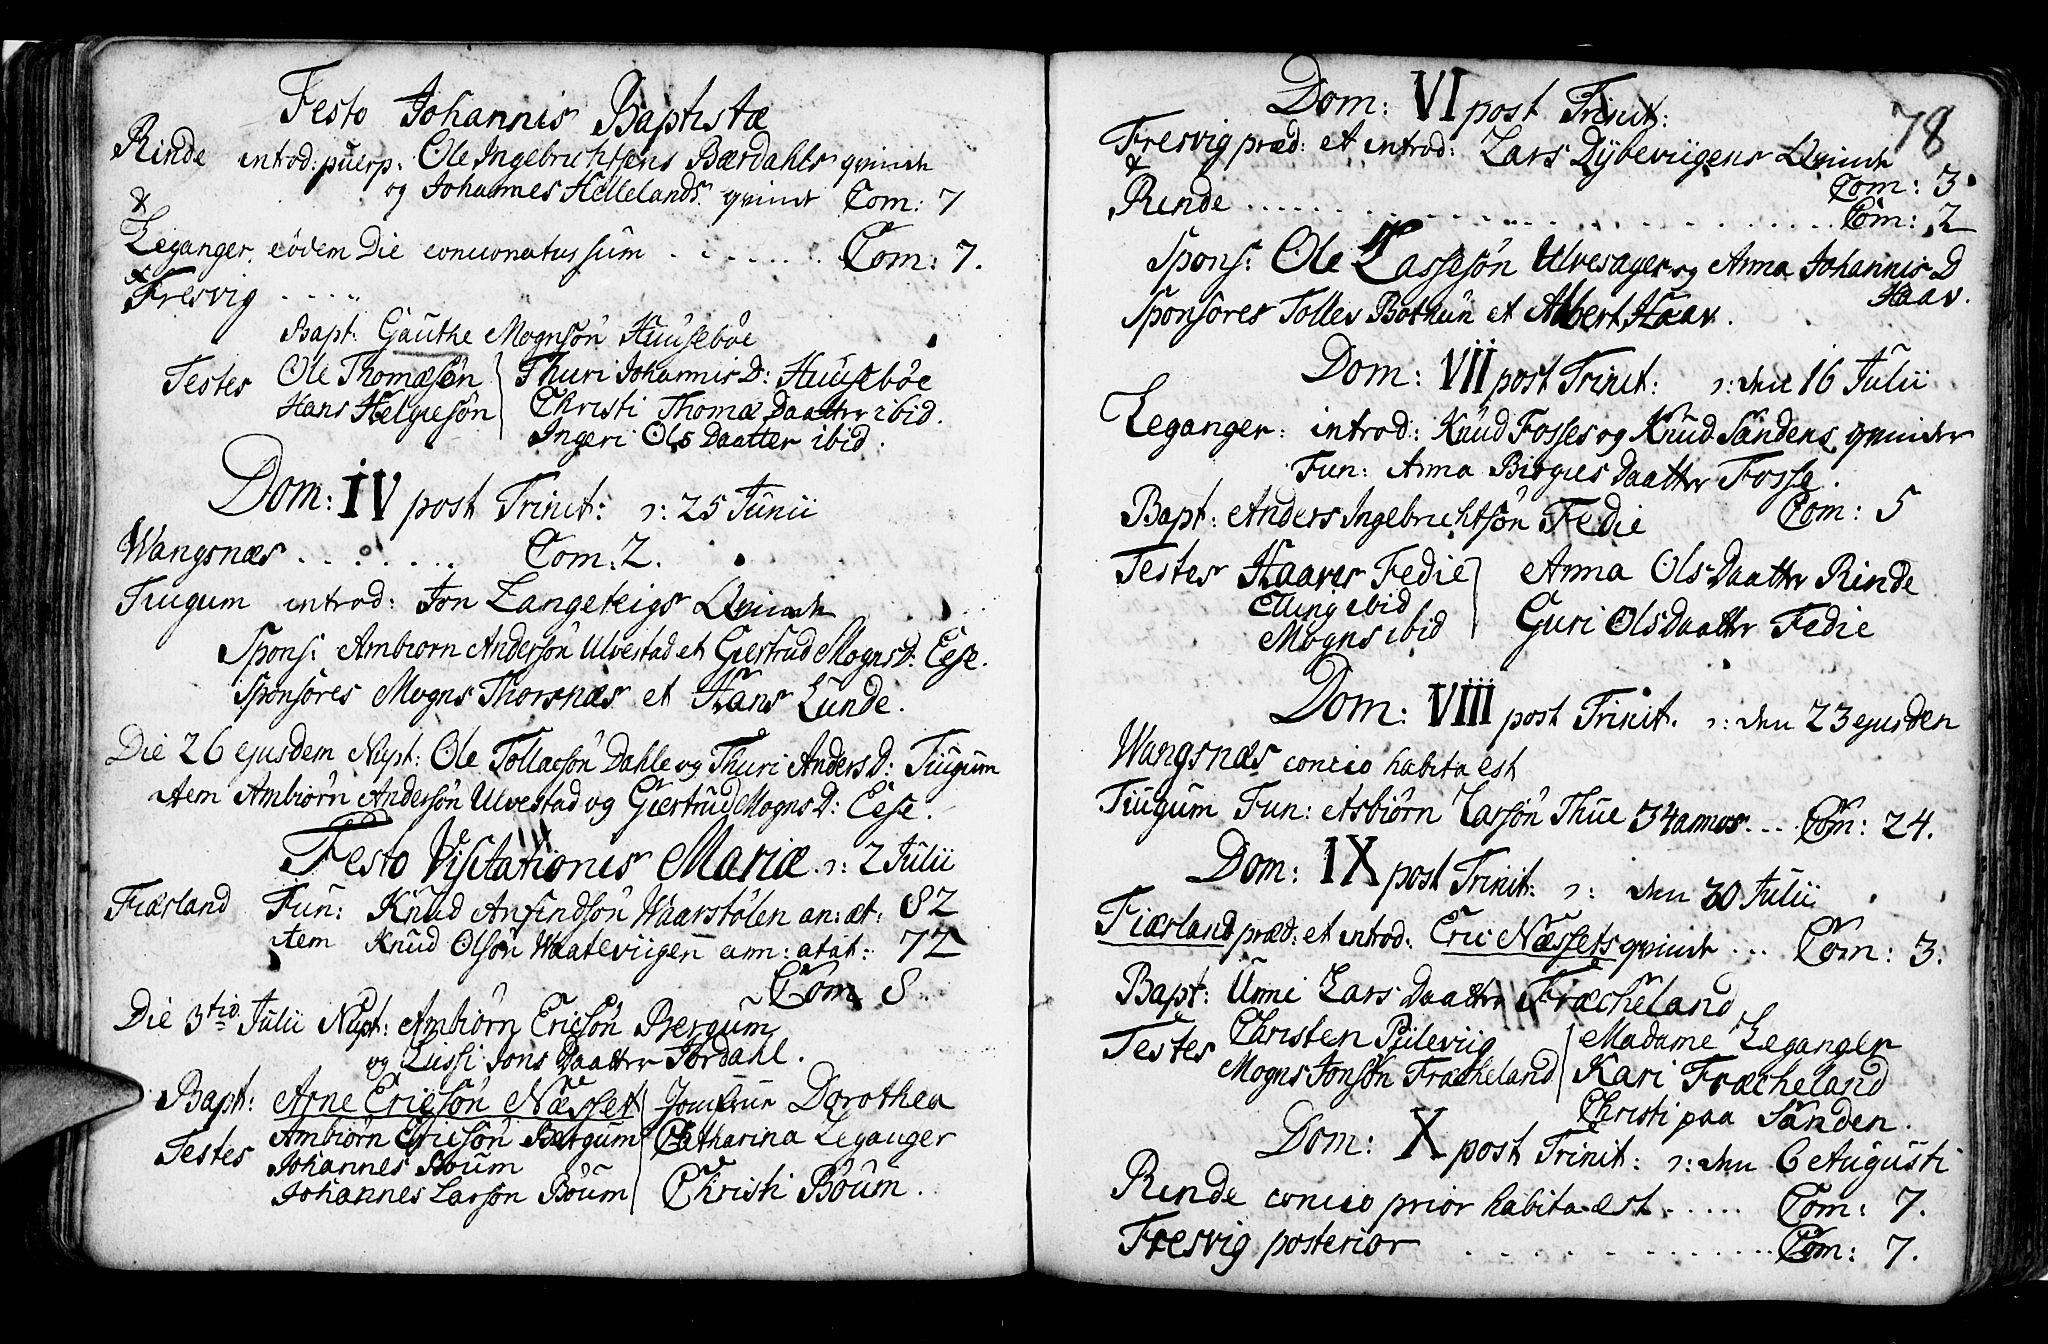 Festo Johannis Baptistæ
Rinde introd: puerp: Ole Ingebrichtsens Bærdahls qvinde
og Johannes Hellelands qvinde Com: 7
&
Leganger eodem Die concionatus sum . . . . . . . Com: 7.
&
Fresvig . . . . .
Bapt. Gauthe Mognsøn Huusebøe
Testes Ole Thomæsøn Thuri Johannis D: Huusebøe
Hans Helgiesøn Christi Thomæ Daatter ibid.
Ingeri Ols Daatter ibid.
Dom: IV post Trinit: ɔ: 25 Junii
Wangsnæs . . . . . . . Com: 2.
Tiugum introd: Jon Langeteigs Qvinde
Spons: Ambiorn Andersøn Ulvestad et Giertrud Mogns D: Eese.
Sponsores Mogns Thorsnæs et Hans Lunde.
Die 26 ejusdem Nupt: Ole Tollacsøn Dahle og Thuri Anders D: Tiugum
item Ambiørn Andersøn Ulvestad og Giertrud Mogns D: Eese.
Festo Visitationis Mariæ ɔ: 2 Julii
Fiærland Fun: Knud Anfindsøn Waarstølen an: æt: 82
item Knud Olsøn Waateviigen ann: ætat: 72
Com 8.
Die 3tio Julii Nupt: Ambiørn Ericsøn Bergum
og Lussi Jons Daatter Jordahl.
Bapt: Arne Ericsøn Næsset Jomfrue Dorothea
Testes Ambiørn Ericsøn Bergum Catharina Leganger
Johannes Bøum
Johannes Larsøn Bøum Christi Bøum.
78
Dom: VI post Trinit:
Fresvig præd: et introd: Lars Dybeviigens Qvinde
Com: 3.
&
Rinde . . . . . . . . . . . . . . . . Com: 2
Spons: Ole Lassesøn Ulvesager og Anna Johannis D
Haav.
Sponsores Tolles Bothun et Albert Haav.
Dom: VII post Trinit: ɔ: den 16 Julii
Leganger: introd: Knud Fosses og Knud Sandens qvinder
Fun: Anna Birgies Daatter Fosse.
Com: 5
Bapt: Anders Ingebrichtsøn Fedie
Testes Haaver Fedie Anna Ols Daatter Rinde
Elling ibid
Mogns ibid Guri Ols Daatter Fedie
Dom: VIII post Trinit. ɔ: den 23 ejusdem
Wangsnæs concio habita est
Tiugum Fun: Asbiørn Larsøn Thue 34 annos . . . . Com: 24.
Dom: IX post Trinit: ɔ: den 30 Julii
Fiærland præd: et introd: Eric Næssets qvinde . . . Com: 3.
Bapt: Unni Lars Daatter Fræcheland
Testes Christen Piileviig Madame Leganger
Mogns Jonsøn Fræcheland Kari Fræcheland
Christi paa Sanden.
Dom: X post Trinit: ɔ: den 6 Augusti
Rinde concio prior habita est . . . . . Com: 7.
Fresvig posterior . . . . . . . . . . . . Com: 7.